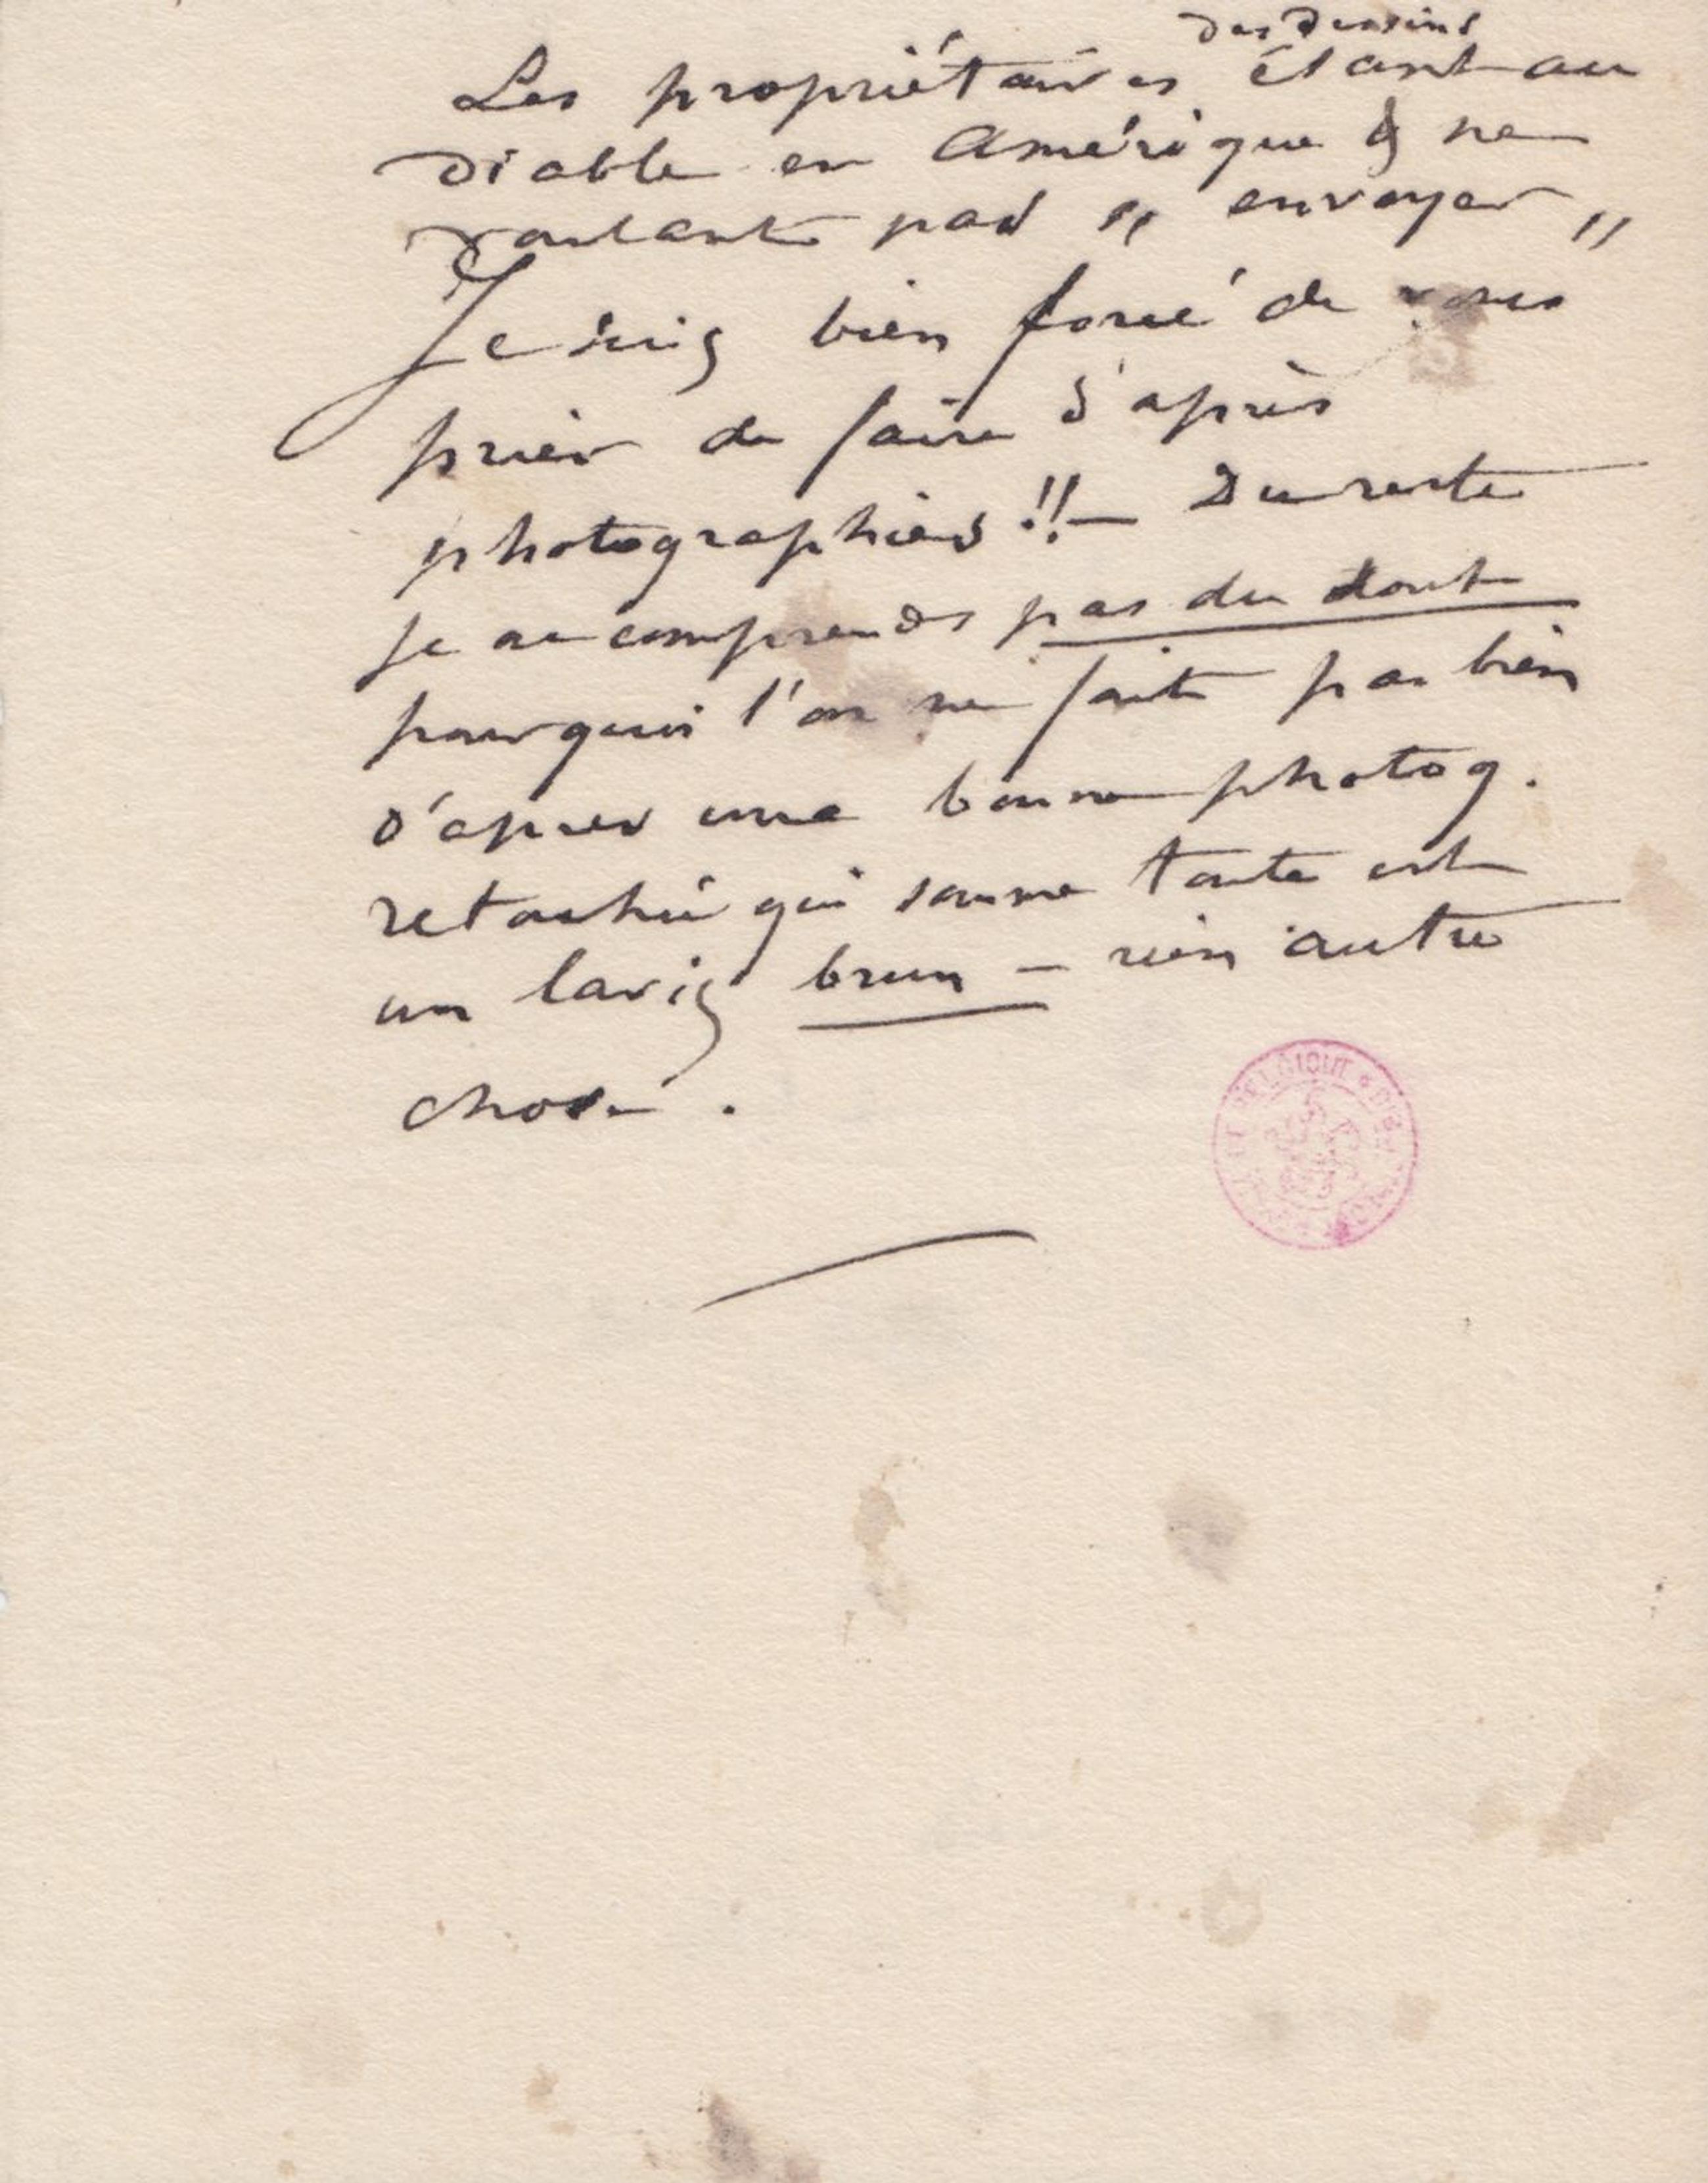 des dessins
Les propriétaires étant au
diable en Amérique & ne
voulant pas " envoyer "
Je suis bien forcé de vous
prier de faire d'après
photographies !! — Du reste
je ne comprends pas du tout
pourquoi l'on ne fait pas bien
d'après une bonne photog.
retouchée qui somme toute est
un lavis brun — rien autre
chose .